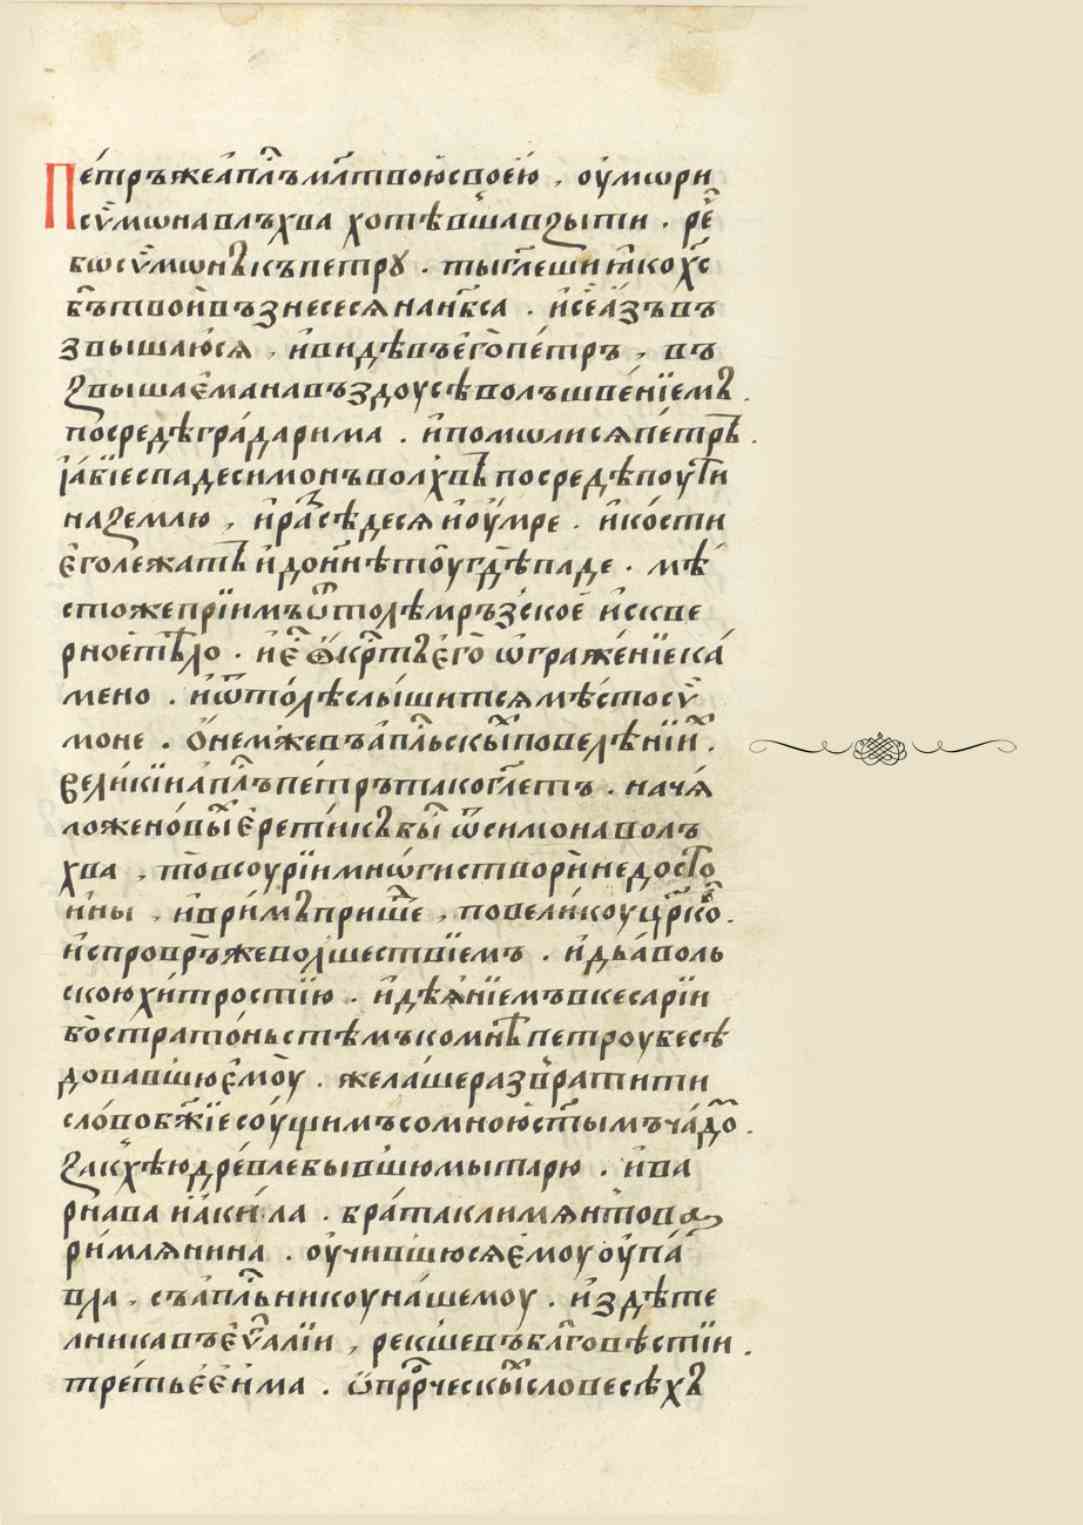 Пе́тръжеа҆пл҃ъмл҃твоюсвоею̀ , оу҆мѡри
сѵ́мѡнавлъхва хотѣвшавꙁыти . ре҇
бѡсѵ́мѡнꙋкъпетрꙋ . тыгл҃ешиꙗ҆кох҇с
бг҃ътвоивъзнесесѧнанб҃са . и҆се́а҆́зъвъ
звышаю́сѧ , и҆видѣвъе҆го̀пе́тръ , въ
ꙁвышае҆манавъздоусѣволъшве́нїемъ .
посредѣгра́дарима . и҆помѡлисѧпе́тръ .
ꙗ҆́бїеспадесимонъволхвъпосредѣпоути
наꙁемлю , и҆ра́сѣдесѧ и҆оу҆́мре . и҆ко́сти
е҆голежатъ и҆дон҃нѣтоугдѣпаде . мѣ́
стожепрїимъѿтолѣмръзское и҆скве
рноетѣло . и҆е҆ ѻ҆кр҇тъе҆го̀ ѡ҆граже́нїека́
мено . и҆ѿто́лѣслы́шитсѧмѣ́стосѵ́
моне . Ѻ҆немжевъа҆пл҃ьскы́повелѣнїи .
вели́кїиа҆пл҃ъпе́трътакогл҃етъ . нача́
ложено́вы́е҆рети́кꙋбы́ ѿсимонаволъ
хва , то̀всоурїимнѡ́гистворѝнедосто
и҆ны , и҆вримъприше҇ , повели́коуцр҇ко .
и҆спровръ́жеволшествїемъ . и҆дьа́воль
скоюхи́тростїю . и҆дѣѧ́нїемъвкесарїи
во̀страто́ньстѣмъкомнѣпетроубесѣ
довавшюе҆мо̀у . жела́шеразврати́ти
сло́вобж҃їесоу́щимъсомноюст҃ымъча́до .
ꙁакхѣюдре́влебывшюмытарю . и҆ва
рнава и҆а҆ки́ла . бра́таклимѧнтова
ри́млѧнина . оу҆чившюсѧе҆моуоу҆па́
вла , съа҆пл҃ьникоуна́шемоу . и҆здѣте
лникавъе҆ѵ҃алїи , рекшевъбл҃говѣстїи .
тре́тьее҆и҆ма . ѿпр҇рческы́словесѣхъ